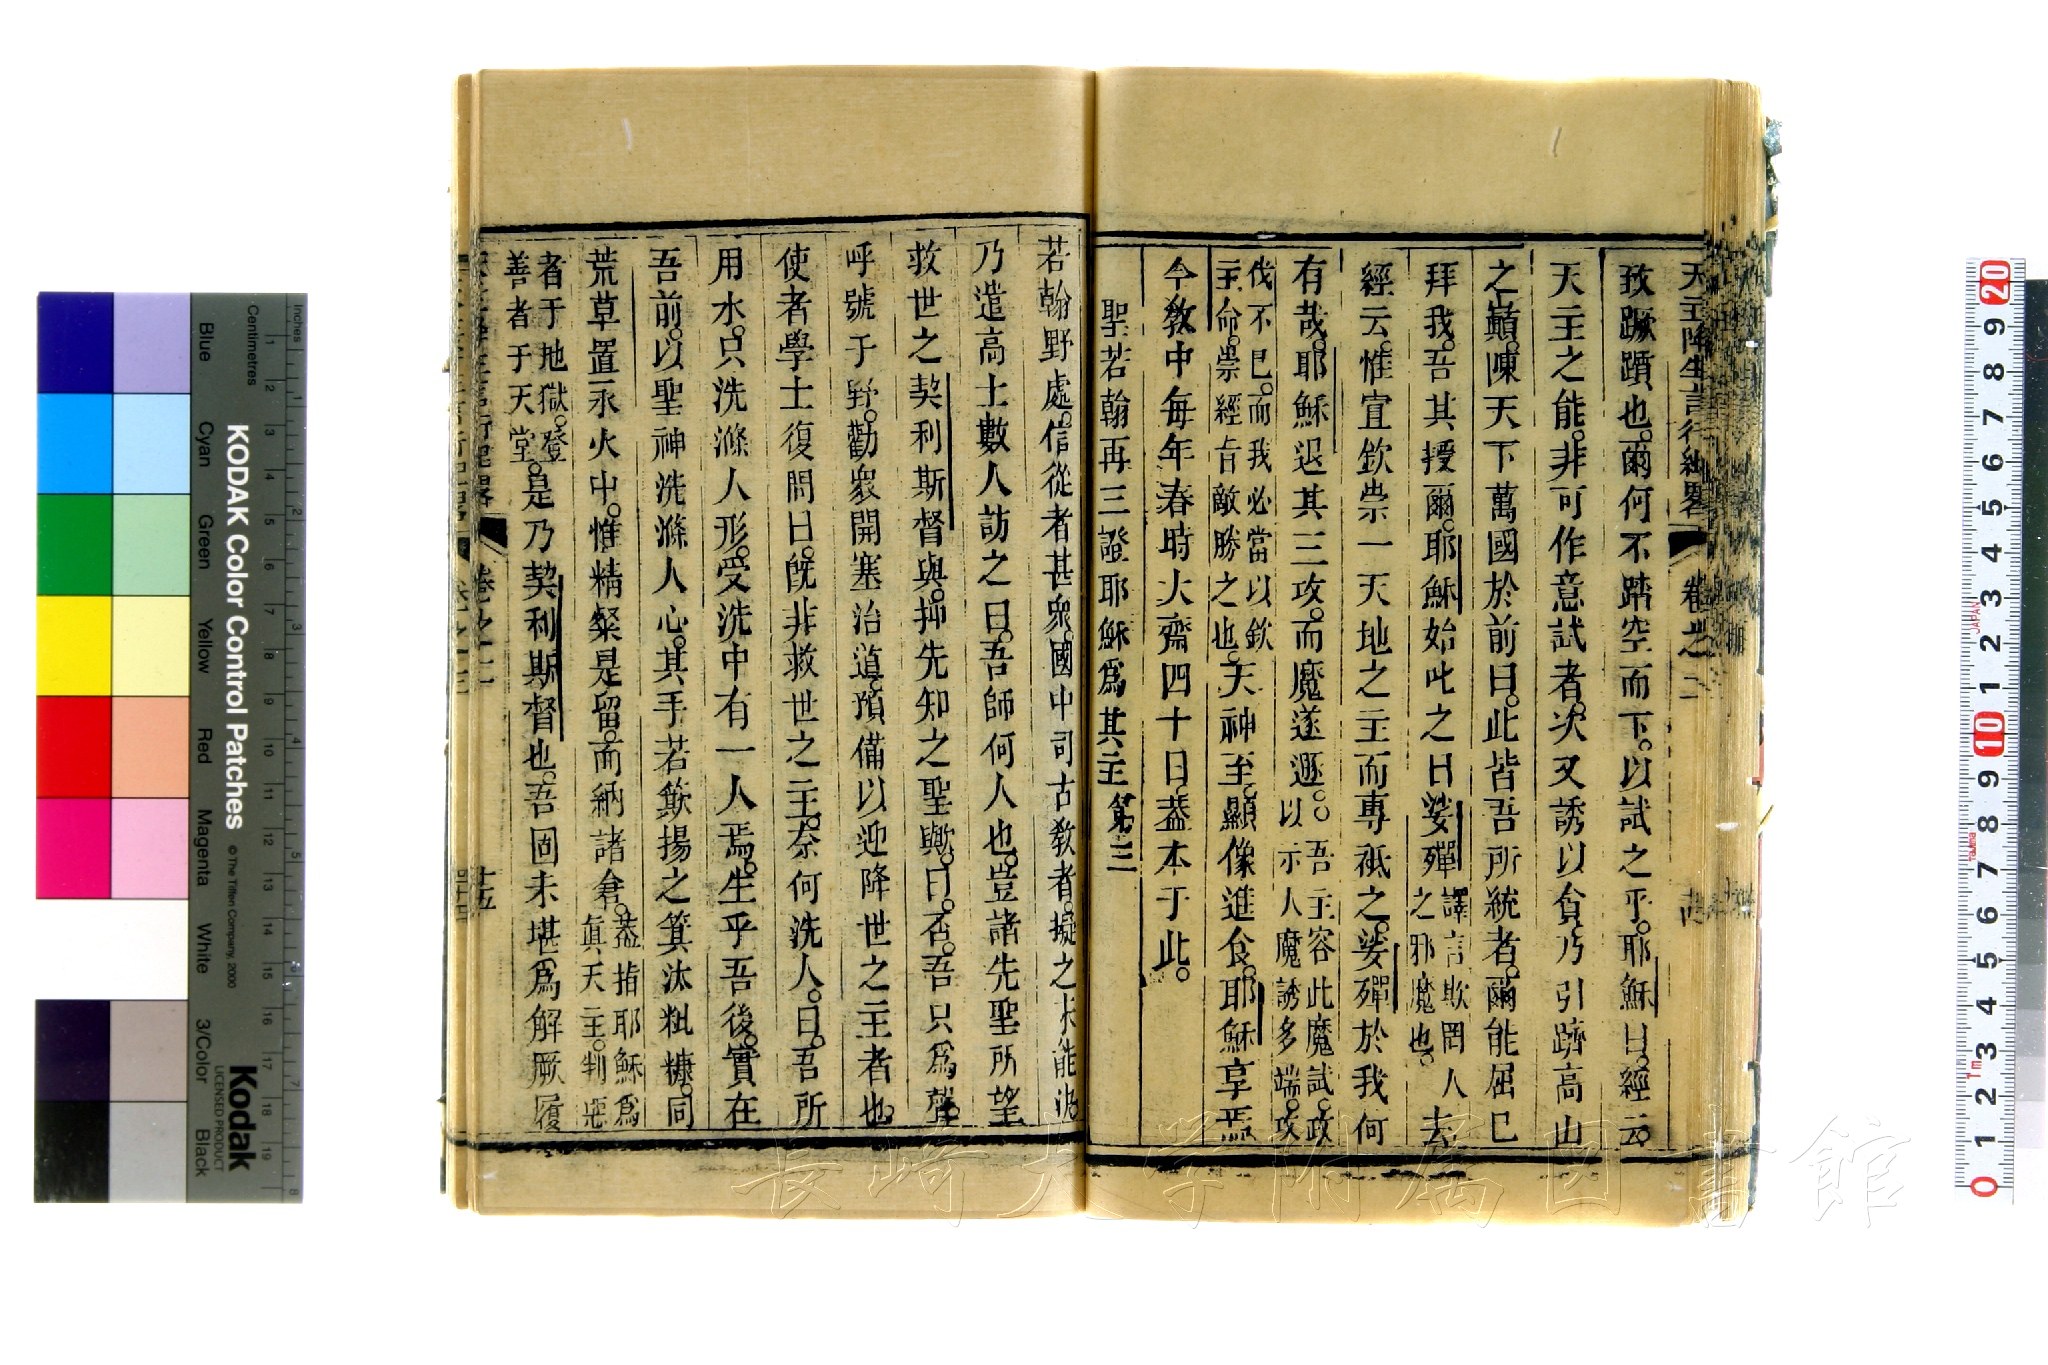 天主降生言行紀畧 卷之二
致蹶躓也。爾何不踏空而下。以試之乎。耶穌曰。經云。
天主之能。非可作意試者。次又誘以貪。乃引躋高山
之巔。陳天下萬國於前曰。此皆吾所統者。爾能屈已
拜我。吾其授爾。耶穌始叱之曰。娑殫譯言欺罔人之邪魔也。去
經云。惟宜欽崇一天地之主而專祗之。娑殫於我何
有哉。耶穌退其三攻。而魔遂遯。○吾主容此魔試。政以示人魔誘多端。攻
伐不已。而我必當以欽主命。崇經旨敵勝之也。天神至。顯像進食。耶穌享焉
今教中每年春時大齋四十日。葢本于此。
聖若翰再三證耶穌為其主 第三
若翰野處。信從者甚衆。國中司古教者。擬之能
乃遣高士數人訪之曰。吾師何人也。豈諸先聖所望
救世之契利斯督與。抑先知之聖歟。曰。否。吾只為聲
呼號于野。勸衆開塞治道。預備以迎降世之主者也
使者學士復問曰。旣非救世之主。奈何洗人。曰。吾所
用水。只洗滌人形。受洗中有一人焉。生乎吾後。實在
吾前。以聖神洗滌人心。其手若簸揚之箕汰粃糠。同
荒草置永火中。惟精粲是留。而納諸倉。葢指耶穌為眞天主。判惡
者于地獄。登善者于天堂。是乃契利斯督也。吾固未堪為解厥履
卷之二 十五